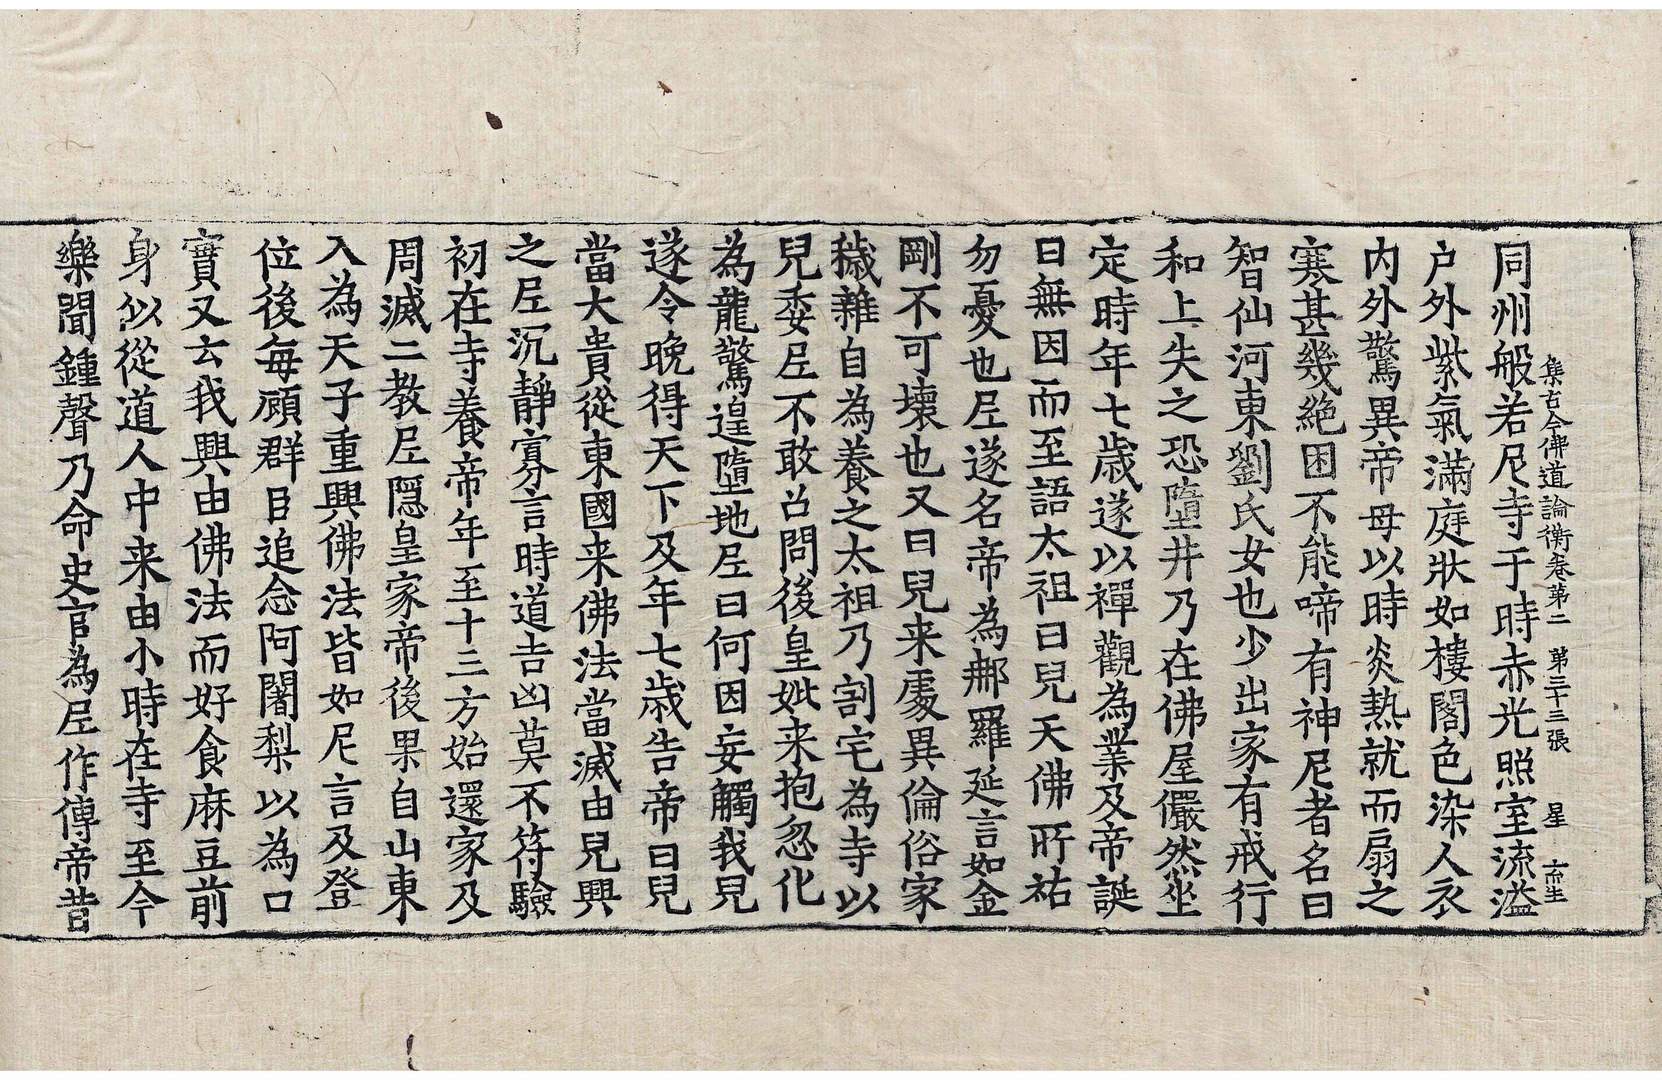 集古今佛道論衡卷第二　第三十三張　星　六而生
同州般若尼寺于時赤光照室流溢
户外紫氣滿庭狀如樓閣色染人衣
内外驚異帝母以時炎熱就而扇之
寒甚幾絶困不能啼有神尼者名曰
智仙河東劉氏女也少出家有戒行
和上失之恐墮井乃在佛屋儼然坐
定時年七歳遂以禪觀為業及帝誕
日無因而至語太祖曰兒天佛所祐
勿憂也尼遂名帝為那羅延言如金
剛不可壞也又曰兒来處異倫俗家
穢雜自為養之太祖乃割宅為寺以
兒委尼不敢召問後皇妣来抱忽化
為龍驚遑墮地尼曰何因妄觸我兒
遂令晚得天下及年七歳告帝曰兒
當大貴從東國来佛法當滅由兒興
之尼沉靜寡言時道吉凶莫不符驗
初在寺養帝年至十三方始還家及
周滅二教尼隱皇家帝後果自山東
入為天子重興佛法皆如尼言及登
位後每顧群臣追念阿闍梨以為口
實又云我興由佛法而好食麻豆前
身似從道人中来由小時在寺至今
樂聞鍾聲乃命史官為尼作傳帝昔